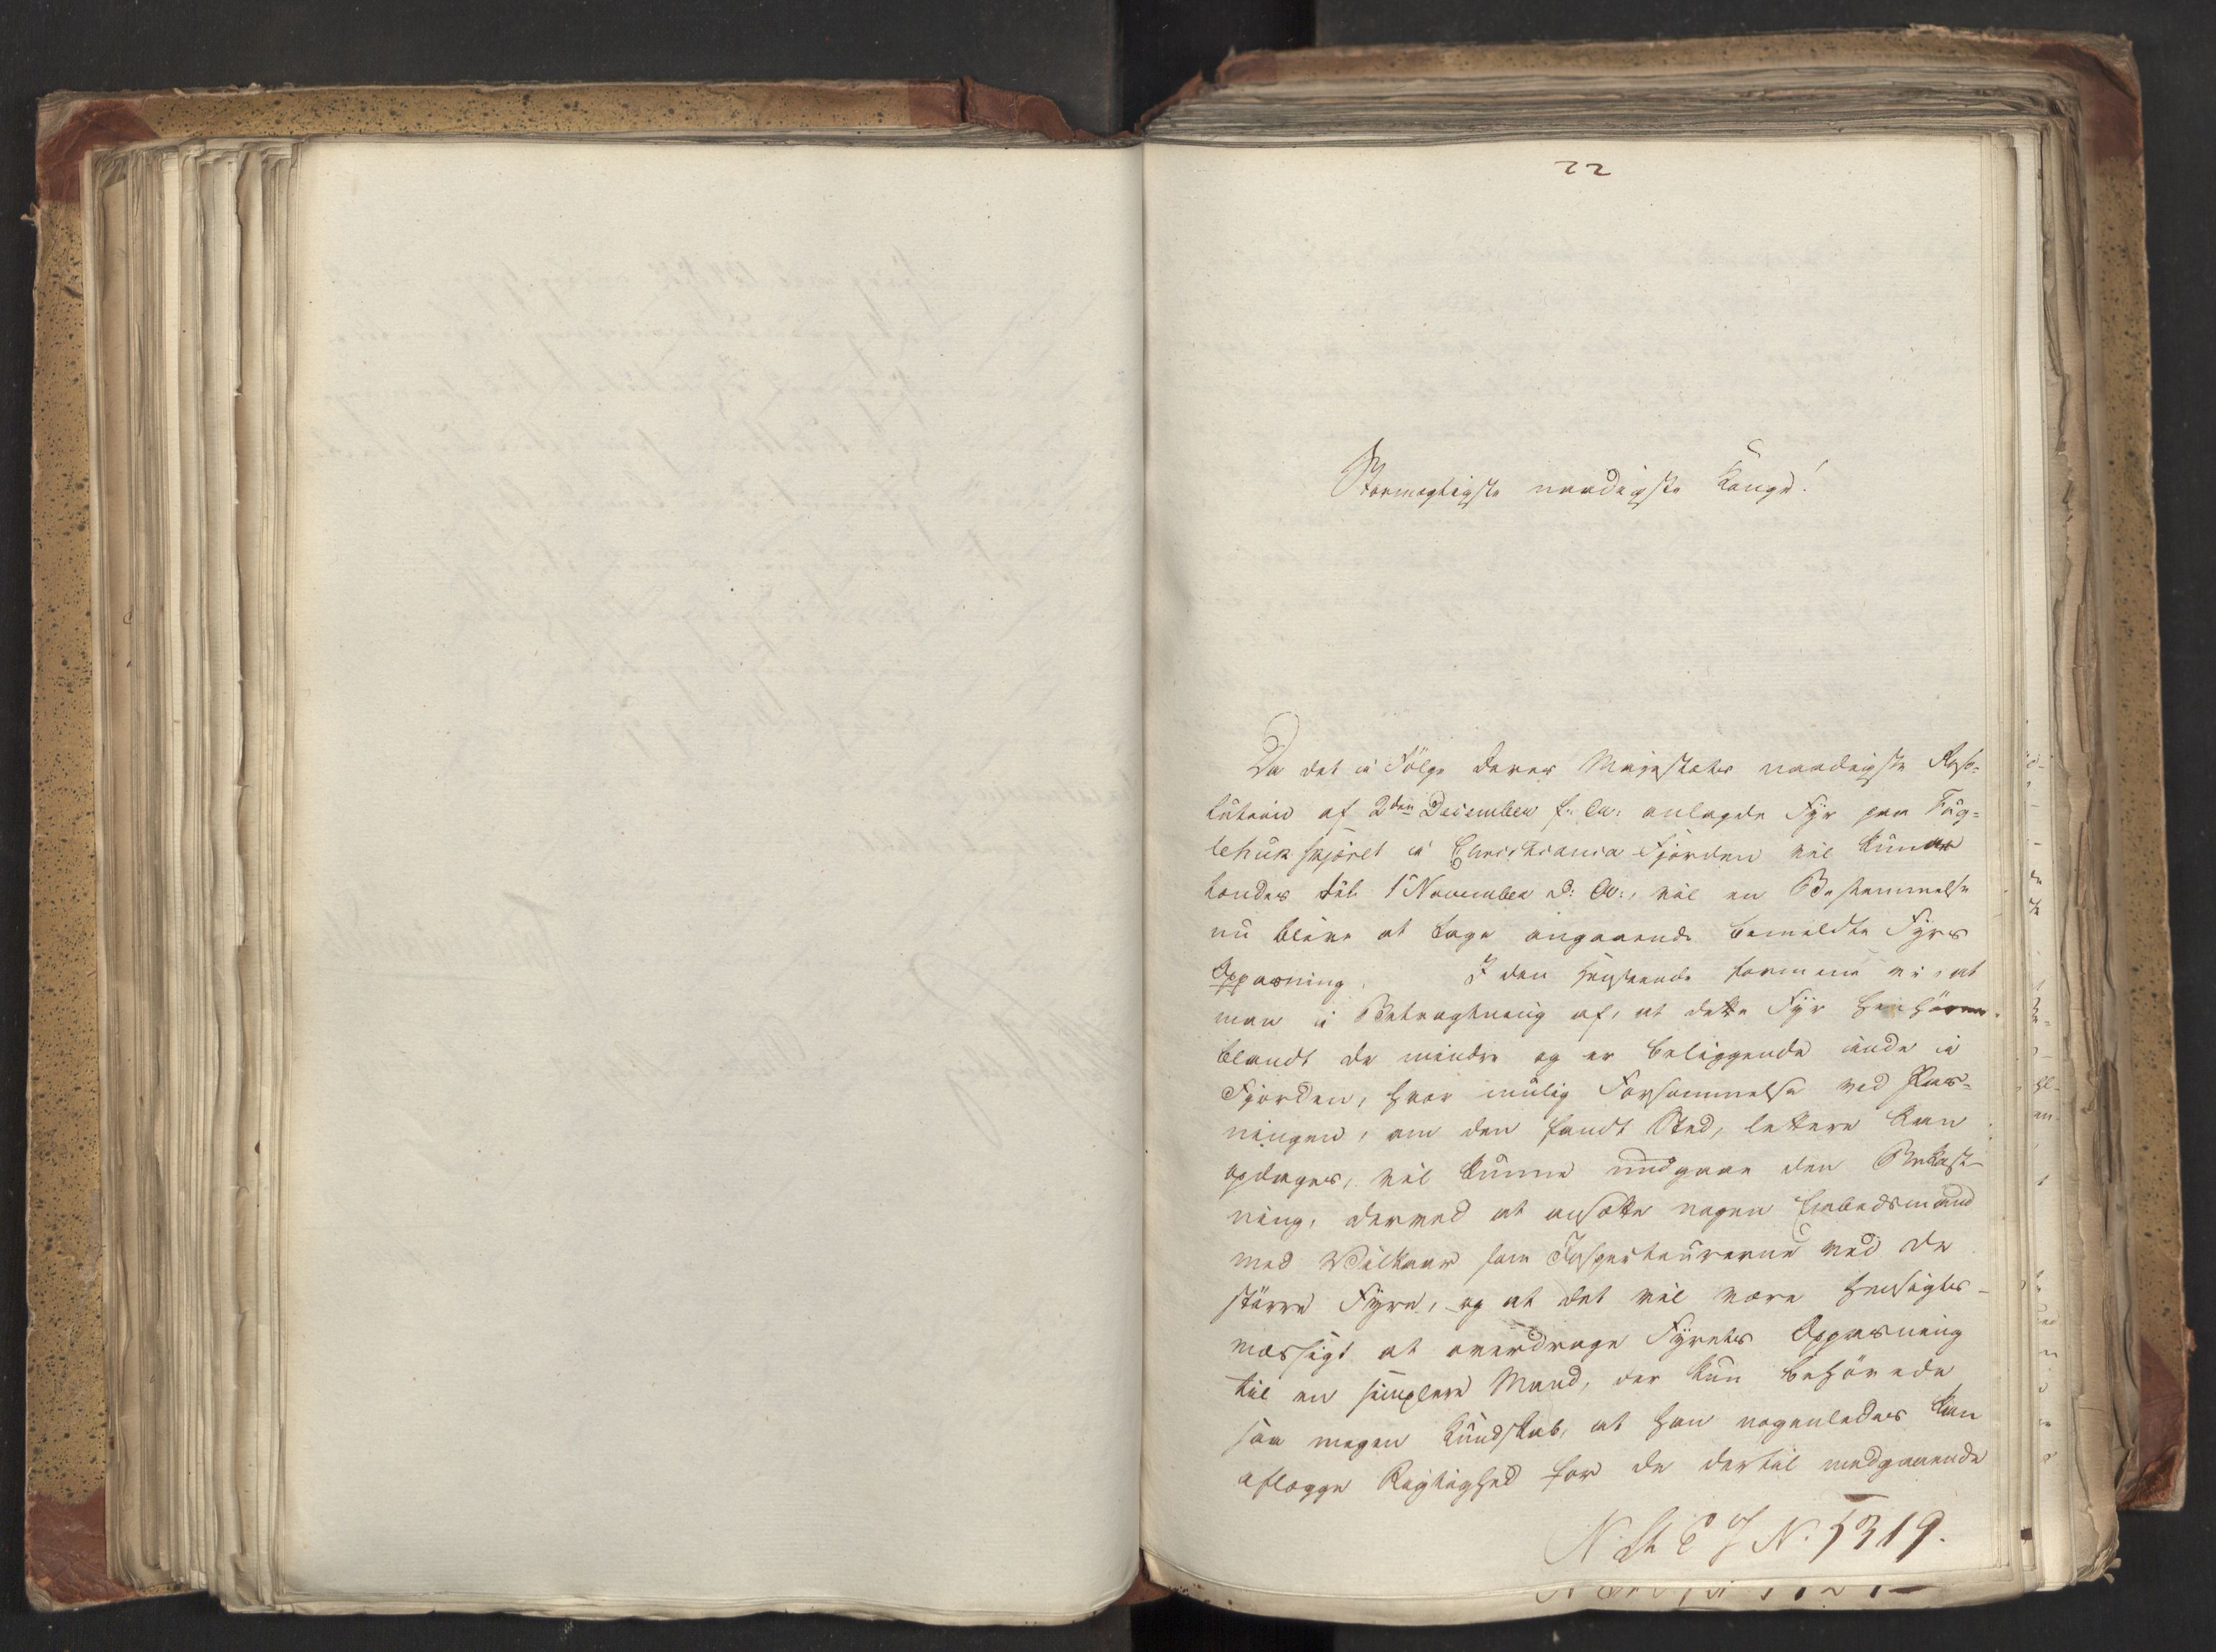 22
Stormægtigste naadigste Konge!
Da det i Følge Deres Majestæts naadigste Reso-
lution af 2den December f: A: anlagde Fyr paa Fug-
lehuk skjæret i Christiania-Fjorden vil kunne
tændes til 1 November d: A:, vil en Bestemmelse
nu blive at tage angaaende bemeldte Fyrs
Oppasning. I den Henseende formene vi, at
man i Betragtning af, at dette Fyr henhører
blandt de mindre og er beliggende inde i
Fjorden, hvor mulig Forsømmelse ved Pas-
ningen, om den fandt Sted, lettere kan
opdages, vil kunne undgaae den Bekost-
ning, derved at ansætte nogen Embedsmand
med Vilkaar som Inspecteurerne ved de
større Fyre, og at det vil være hensigts-
mæssigt at overdrage Fyrets Oppasning
til en simplere Mand, der kun behøvede
saa megen Kundskab, at han nogenledes kan
aflægge Rigtighed for de dertil medgaaende
N. St. C J N. 5319.